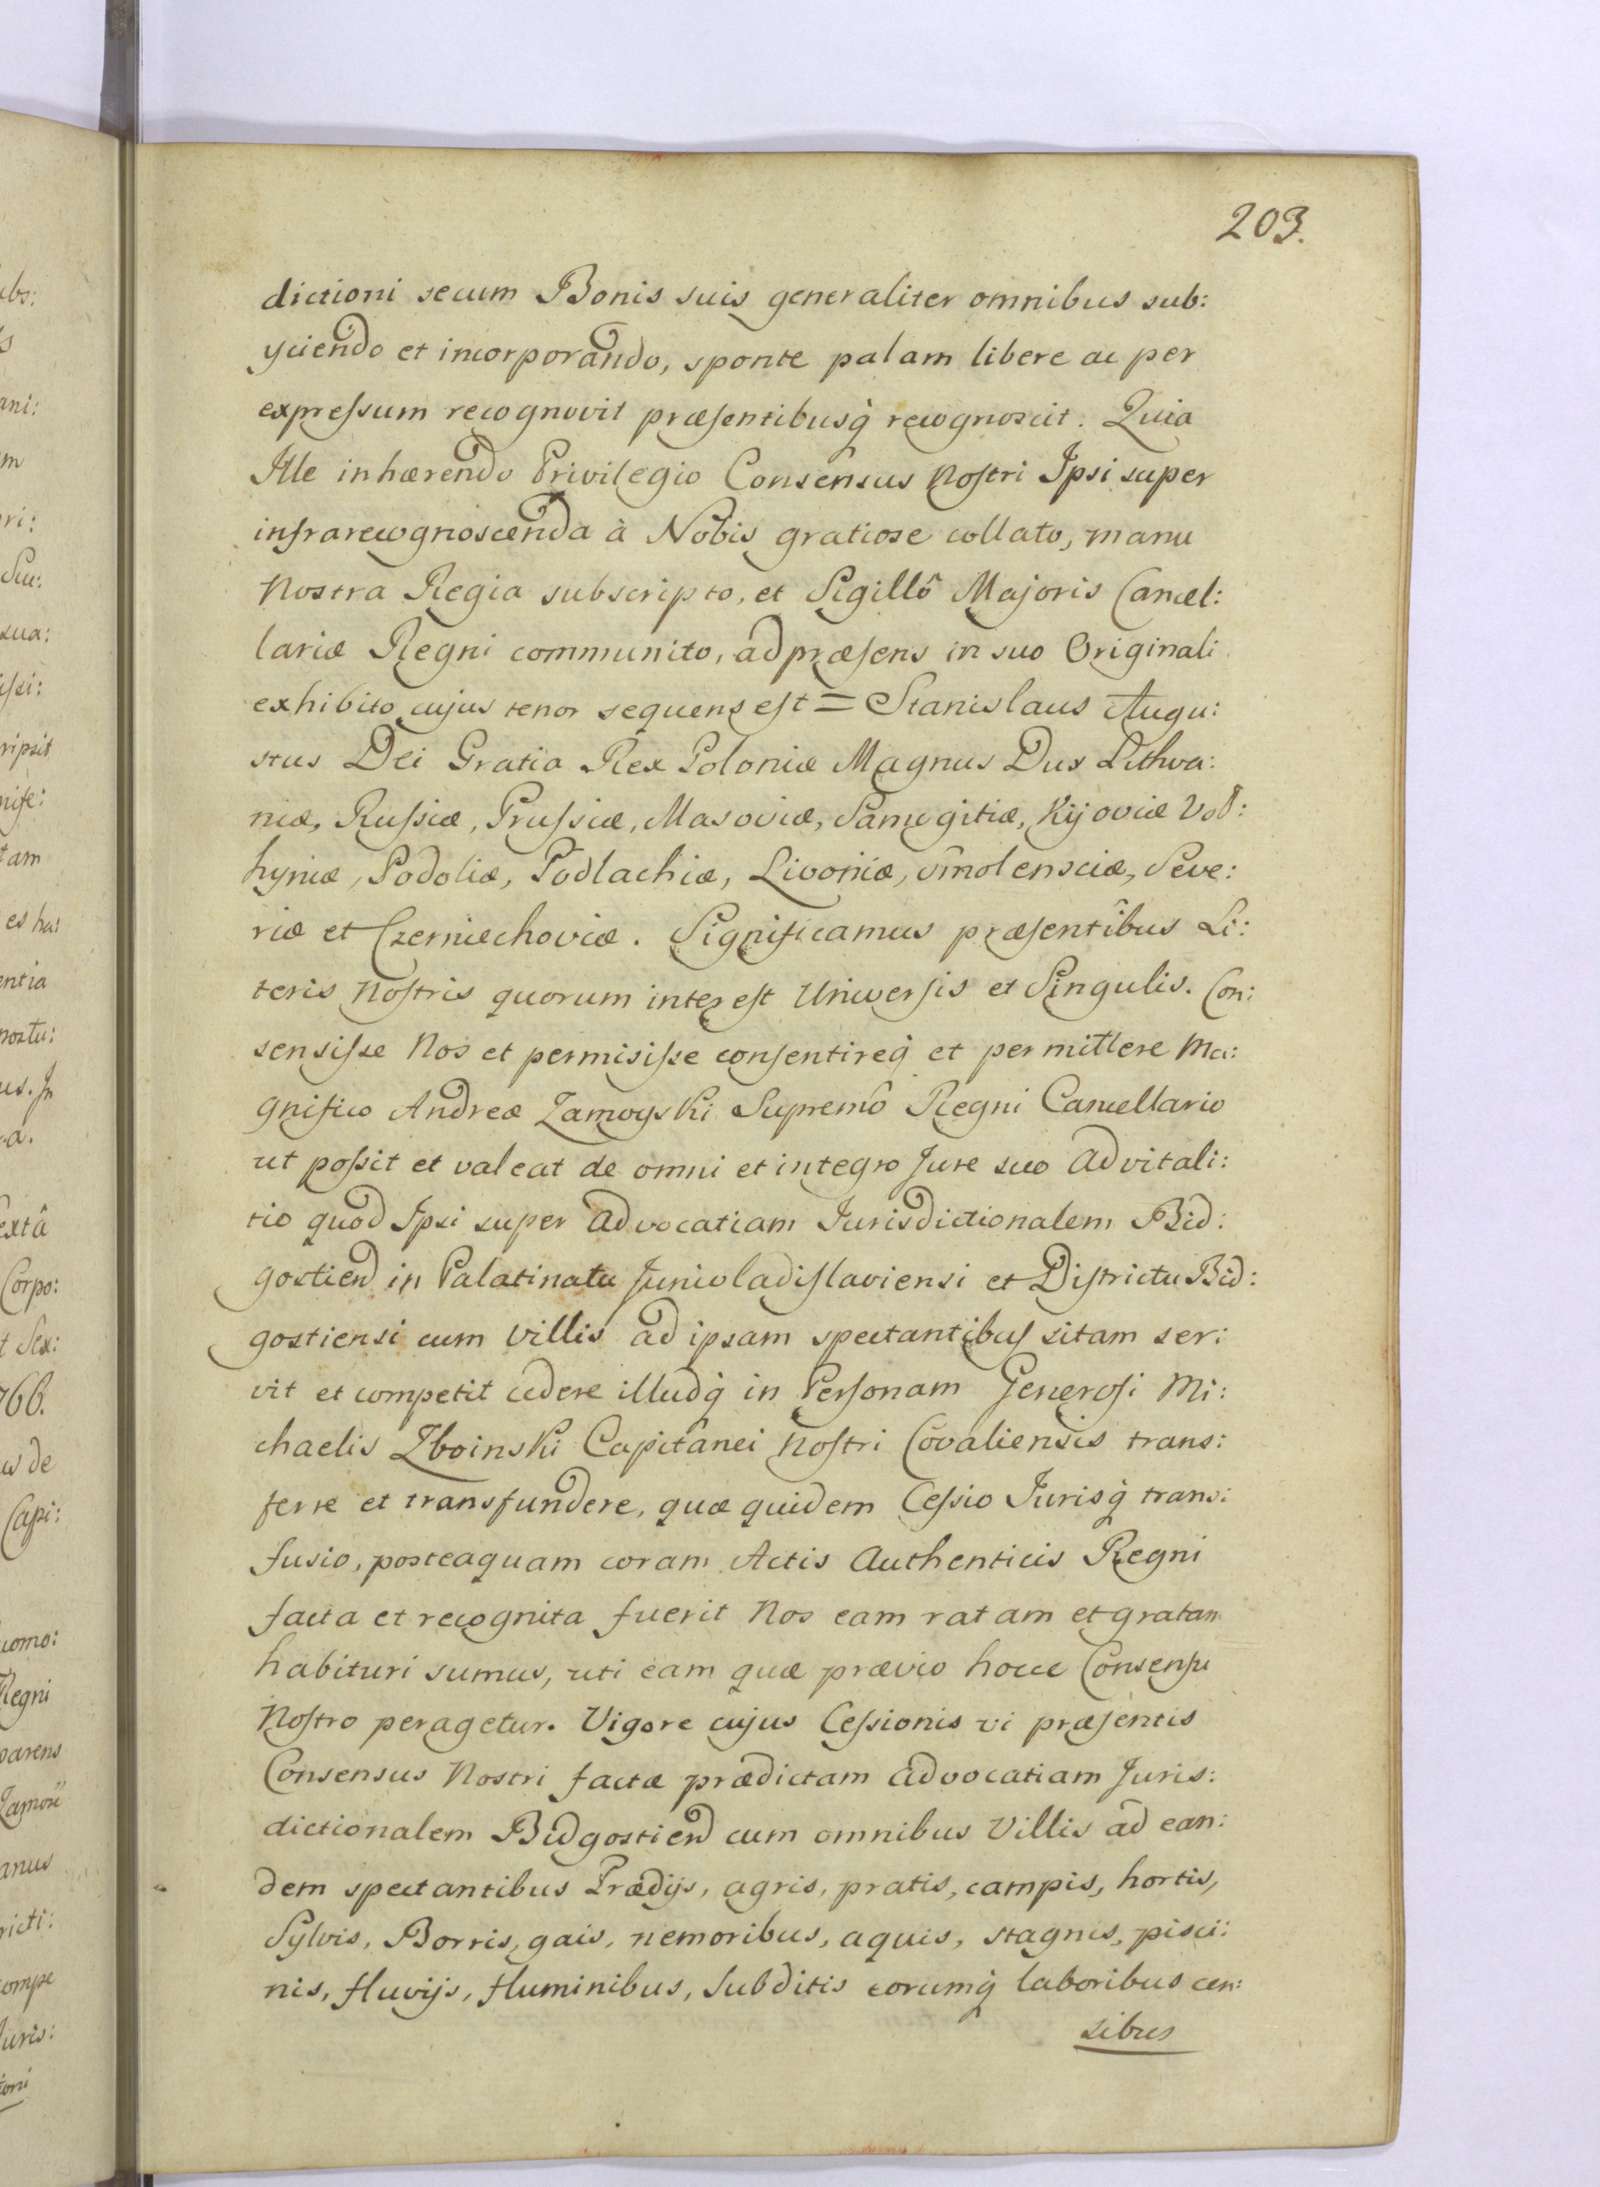 203.
dictioni secum Bonis suis generaliter omnibus sub:
yciendo et incorporando, sponte palam libere ac per
expreſsum recognovit præſentibusq́ recognoscit. Quia
Ille inhærendo Privilegio Consensus Noſtri Ipsi super
infrarecognoscenda à Nobis gratiose collato, manu
Nostra Regia subscripto, et Sigillô Majoris Cancel:
lariæ Regni communito, ad præſens in suo Originali
exhibito cujus tenor sequens eſt = Stanislaus Augu:
stus Dei Gratia Rex Poloniæ Magnus Dux Lithva:
niæ, Ruſsiæ, Pruſsiæ, Masoviæ, Samogitiæ, Kijoviæ Vol:
hyniæ, Podoliæ, Podlachiæ, Livoniæ, Smolensciæ, Seve:
riæ et Czerniechoviæ. Significamus præſentibus Li:
teris Noſtris quorum intereſt Univerſis et Singulis. Con:
sensiſse Nos et permisiſse conſentireq́ et permittere Ma:
gnifico Andreæ Zamoyski Supremô Regni Cancellario
ut poſsit et valeat de omni et integro Jure suo Advitali:
tio quod Ipsi super Advocatiam Jurisdictionalem Bid:
gostien in Palatinatu Junivladiſlaviensi et Diſtrictu Bid:
gostiensi cum Villis ad ipsam spectantibuſ sitam ser:
vit et competit cedere illudq́ in Perſonam Generoſi Mi:
chaelis Zboinski Capitanei Noſtri Covaliensis trans:
ferre et transfundere, quæ quidem Ceſsio Jurisq́ trans:
fusio, posteaquam coram Actis Authenticis Regni
facta et recognita fuerit Nos eam ratam et gratam
habituri sumus, uti eam quæ prævio hocce Consenſu
Noſtro peragetur. Vigore cujus Ceſsionis vi præſentis
Consensus Nostri factæ prædictam Advocatiam Juris:
dictionalem Bidgostien cum omnibus Villis ad ean:
dem spectantibus Prædijs, agris, pratis, campis, hortis,
Sylvis, Borris, gais, nemoribus, aquis, stagnis, pisci:
nis, fluvijs, fluminibus, Subditis eorumq́ laboribus cen:
sibus